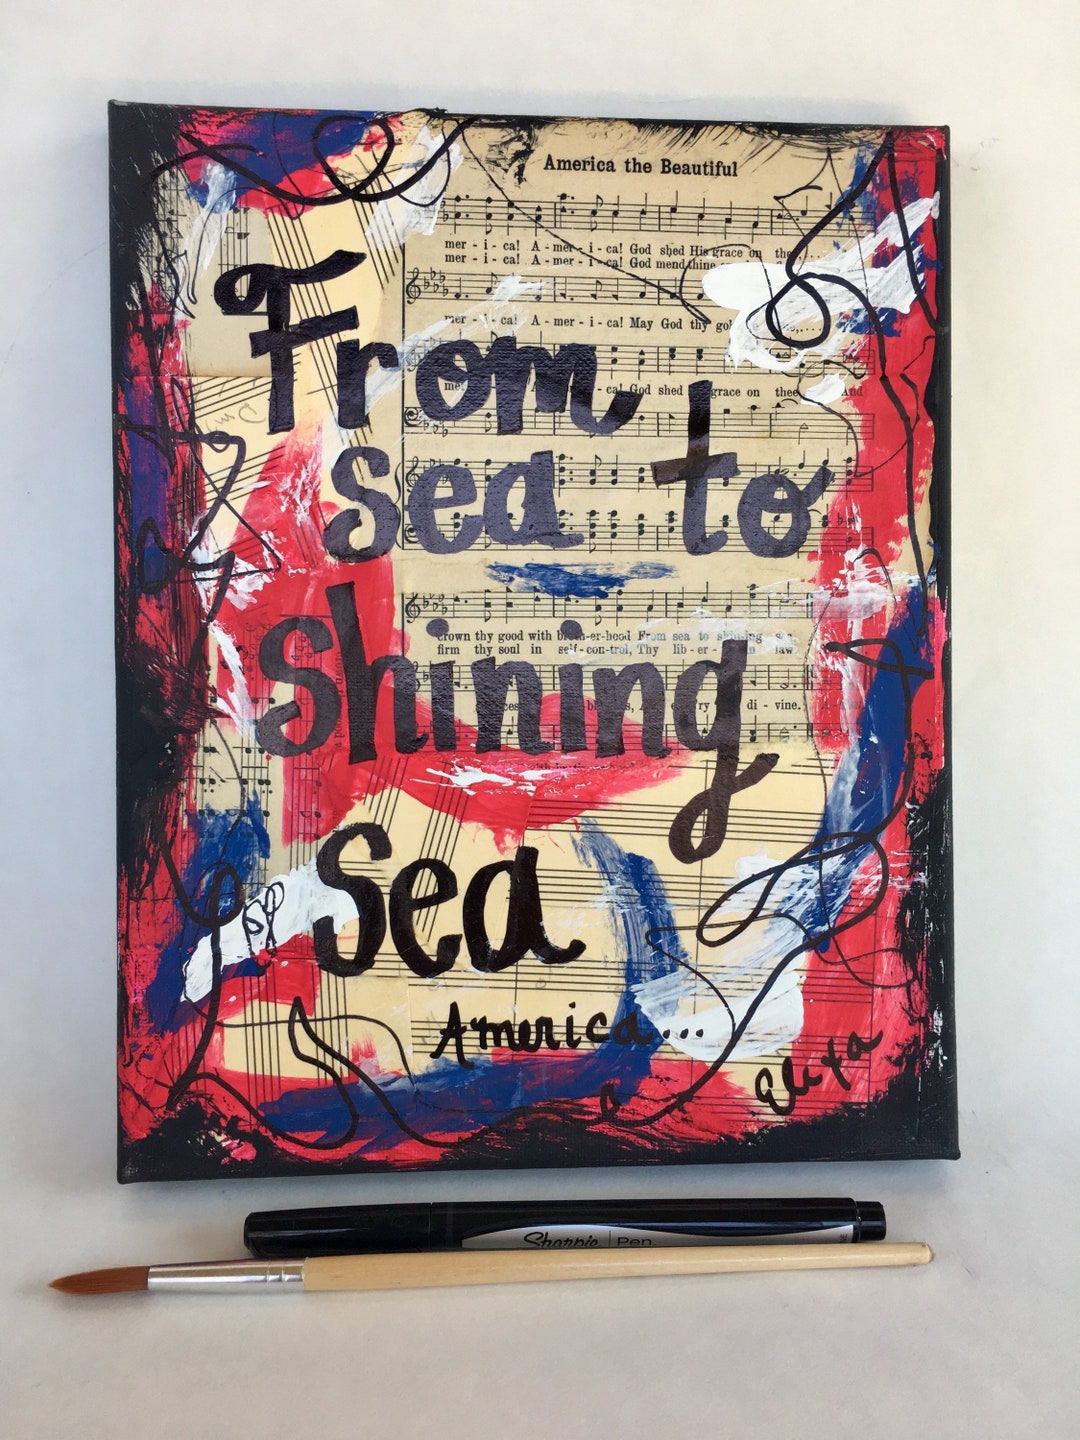 America the Beautiful
mer - i - ca! A - mer - i - ca! God shed His grace on thee,....
mer - i - ca! A - mer - i - ca! God mend thine
From
mer - i - ca! A - mer - i - ca! May God thy
ca! God shed grace on thee And
sea to
crown thy good with broth-er-hood From sea to shining sea
firm thy soul in self-con-trol, Thy lib-er- in law
shining
di - vine. A
sea
America...
Elexa
Sharpie Pen.